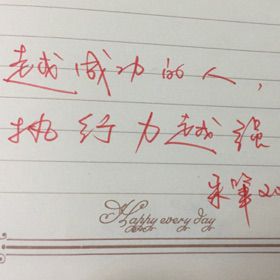 越成功的人，
执行力越强
Happy every day